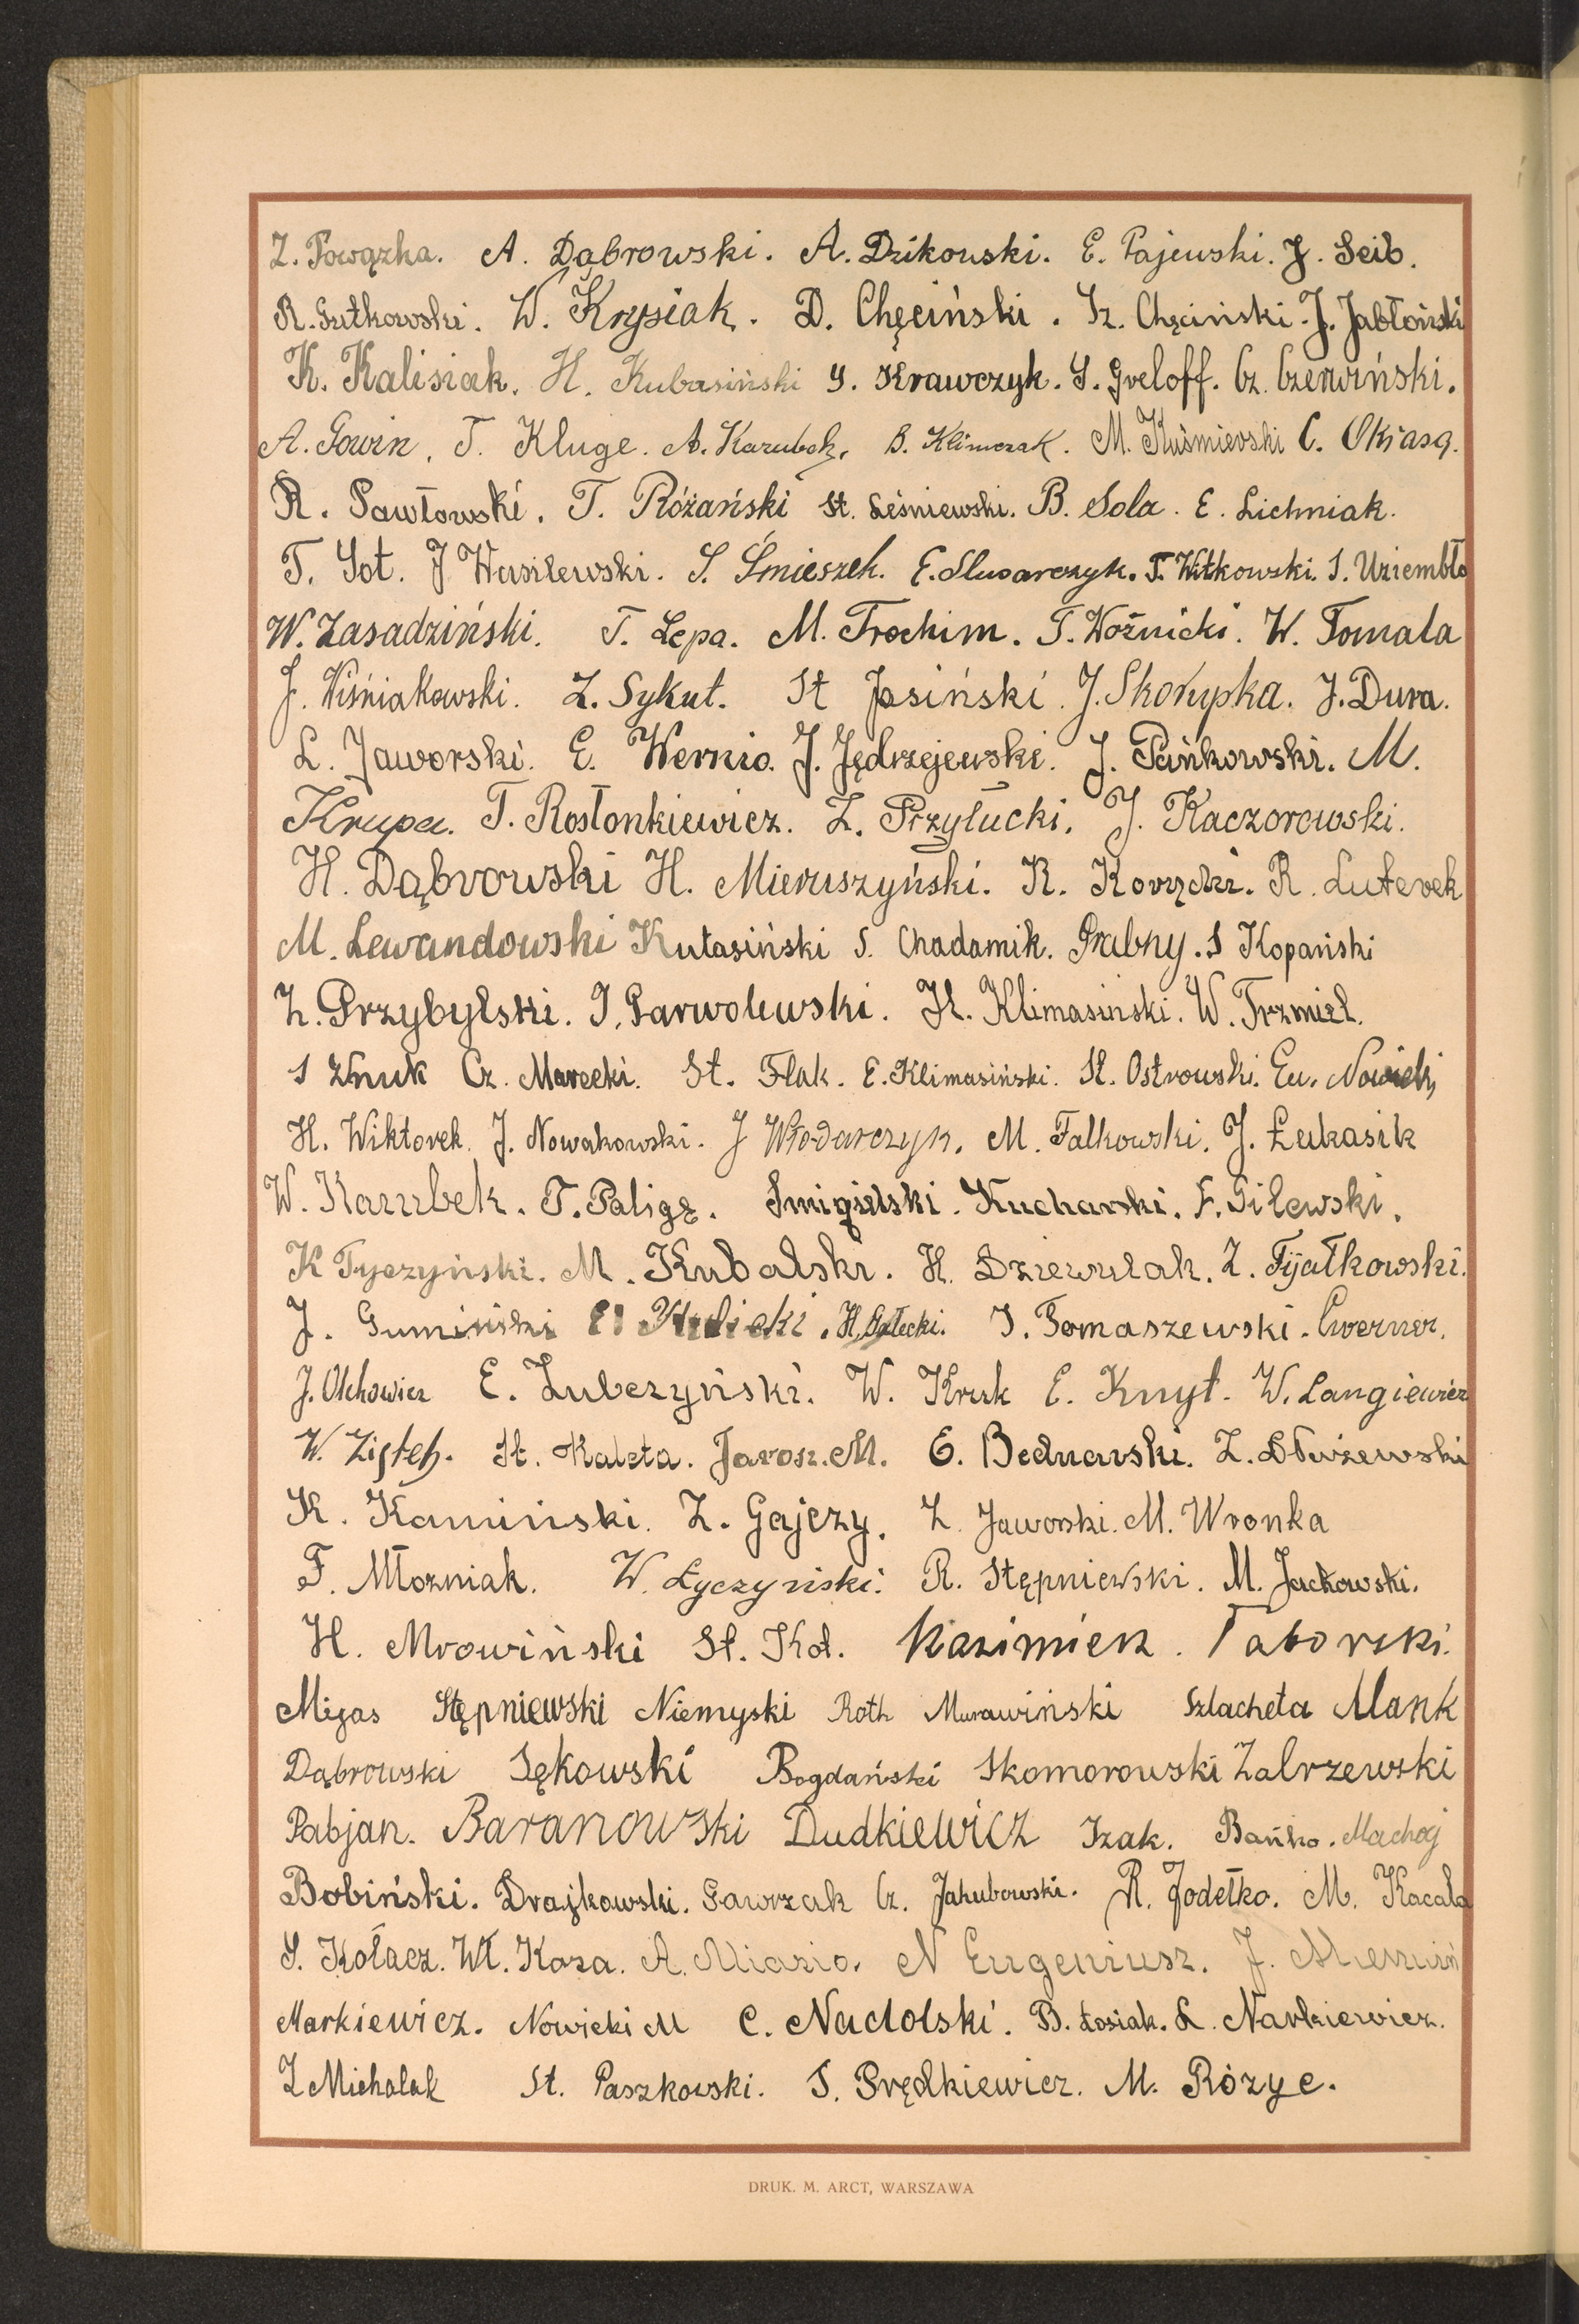 Z. Powązka. A. Dąbrowski. A. Dzikowski. E. Pajewski. J. Seib.
R. Gutkowski. W. Krysiak. D. Chęciński. Iz. Chęcinski. J. Jabłoński
K. Kalisiak. H. Kubasiński S. Krawczyk. S. Greloff. Cz. Czerwiński.
A. Gowin. T. Kluge. A. Karubek. B. Klimczak. M. Kuśmierski C.
R. Pawłowski. T. Różański St. Leśniewski. B. Sola. E. Lichniak.
T. Got. J Wasilewski. S. Śmieszek. E. Slusarczyk. T. Witkowski. S. Uziembło
W. Zasadziński. T. Lepa. M. Trochim. T. Woźnicki. W. Tomala
J. Wiśniakowski. Z. Sykut. St Jasiński. J. Skorupka. J. Dura.
L. Jaworski. E. Wernio. J. Jędrzejewski. J. Pańkowski. M.
Krupa. T. Rosłonkiewicz. Z. Przyłucki. J. Kaczorowski.
H. Dąbrowski H. Mieruszyński. K. Korycki. R. Luterek
M. Lewandowski Kutasiński S. Chadamik. Grabny. S Kopański
Z. Przybylski. J. Parwolewski. H. Klimasinski. W. Trzmiel.
S Żmuk Cz. Marecki. St. Flak. E. Klimasiński. St. Ostrowski. Eu. Nowicki
H. Wiktorek. J. Nowakowski. J Włodarczyk. M. Falkowski. J. Łukasik
W. Karubek. T. Paliga. Smigielski. Kucharski. F. Gilewski.
K Tyczyński. M. Kubalski. H. Dziewulak. Z. Fijałkowski.
J. Gumiński H. Gałecki. S. Tomaszewski. Cwerner.
J. Olchowicz E. Lubczyński. W. Kruk E. Knyt. W. Langiewicz
W. Ziętek. St. Kaleta. Jarosz. M. E. Bednarski. Z. Dłużewski
K. Kaminski. Z. Gajczy. Z. Jaworski. M. Wronka
F. Młozniak. W. Łyczyński. R. Stępniewski. M. Jackowski.
H. Mrowiński St. Kot. Kazimierz. Taborski.
Migas Stępniewski Niemyski Roth Murawiński Szlacheta Mank
Dąbrowski Sękowski Bogdański Skomorowski Zalrzewski
Pabjan. Baranowski Dudkiewicz Izak. Bańko. Machaj
Bobiński. Drajkowski. Gawrzak Cz. Jakubowski. R. Jodełko. M. Kacała
S. Kołacz. Wł. Koza. A. Miazio. N Eugeniusz. J.
Markiewicz. Nowicki M C. Nadolski. B. Łosiak. L. Narkiewicz.
Z Michalak St. Paszkowski. S. Prędkiewicz. M. Rózyc.
DRUK. M. ARCT, WARSZAWA